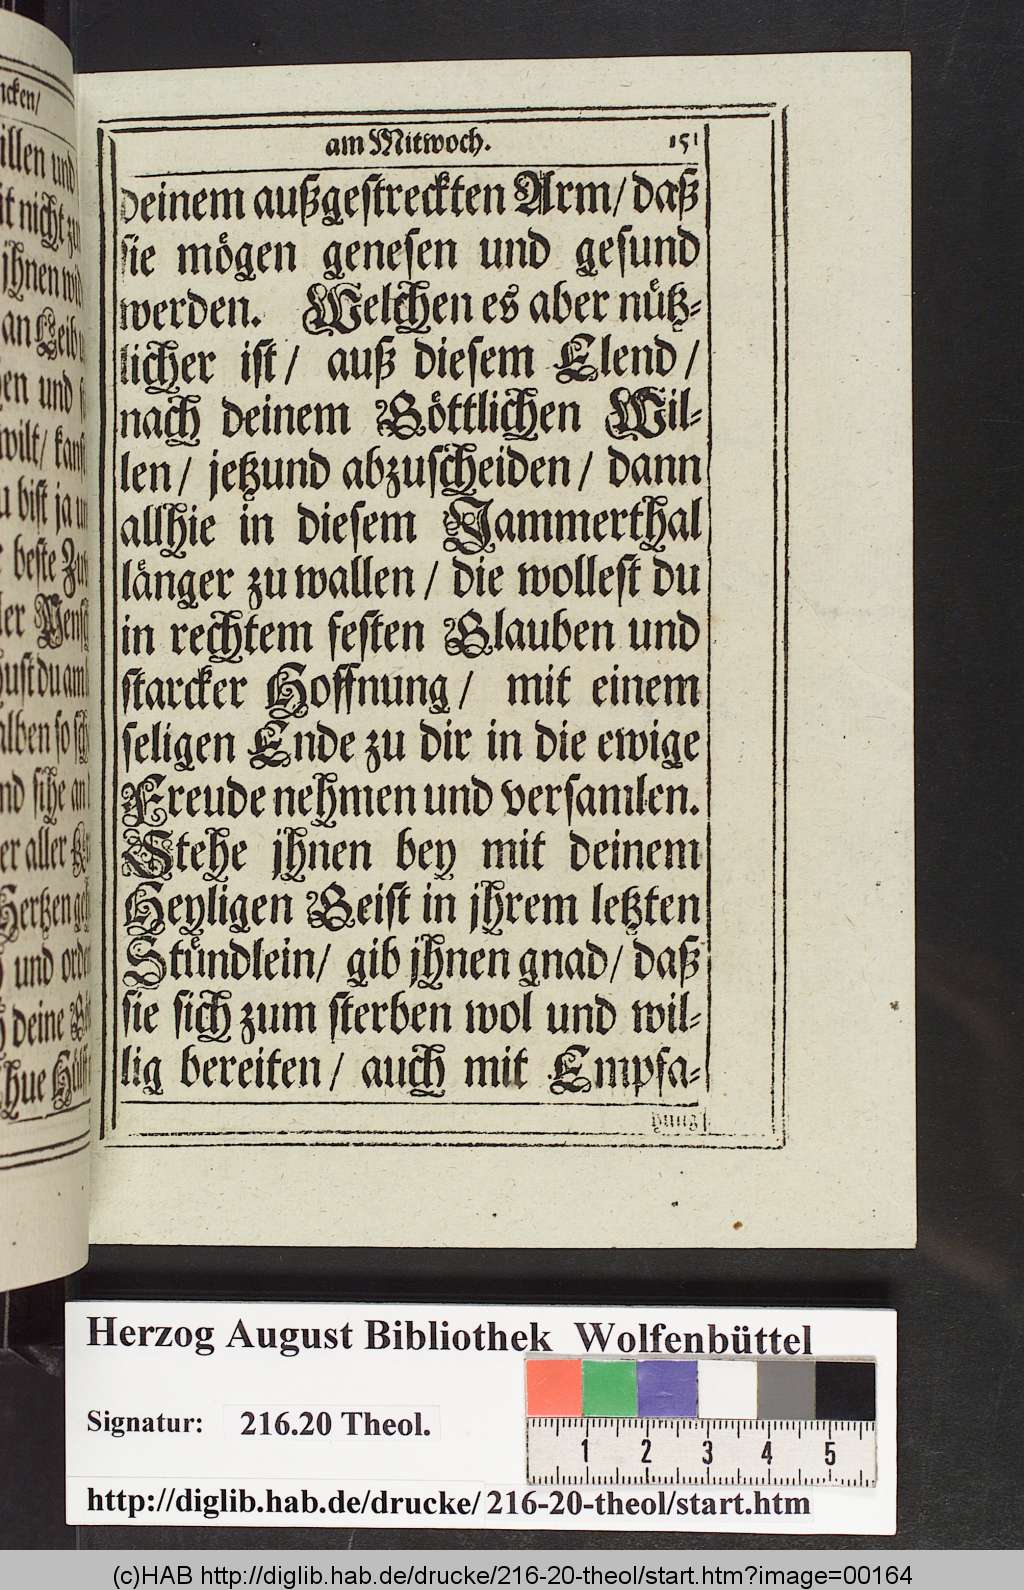 ncken/
illen und
it nicht zu
jhnen wid
an Leib u
en und s
wilt/ kanſt
u biſt ja un
beſte Zu
ler Menſch
huſt du am
alben ſo ſch
nd ſihe an
er aller
Hertzen
und orden
deine
hue Hülff
am Mitwoch. 151
deinem außgeſtreckten Arm/ daß
ſie mögen geneſen und geſund
werden. Welchen es aber nütz-
licher iſt/ auß dieſem Elend/
nach deinem Göttlichen Wil-
len/ jetzund abzuſcheiden/ dann
allhie in dieſem Jammerthal
länger zu wallen/ die wolleſt du
in rechtem feſten Glauben und
ſtarcker Hoffnung/ mit einem
ſeligen Ende zu dir in die ewige
Freude nehmen und verſamlen.
Stehe jhnen bey mit deinem
Heyligen Geiſt in jhrem letzten
Stündlein/ gib jhnen gnad/ daß
ſie ſich zum ſterben wol und wil-
lig bereiten/ auch mit Empfa-
hung
Herzog August Bibliothek Wolfenbüttel
Signatur: 216.20 Theol.
1 2 3 4 5
http://diglib.hab.de/drucke/216-20-theol/start.htm
(c)HAB http://diglib.hab.de/drucke/216-20-theol/start.htm?image=00164